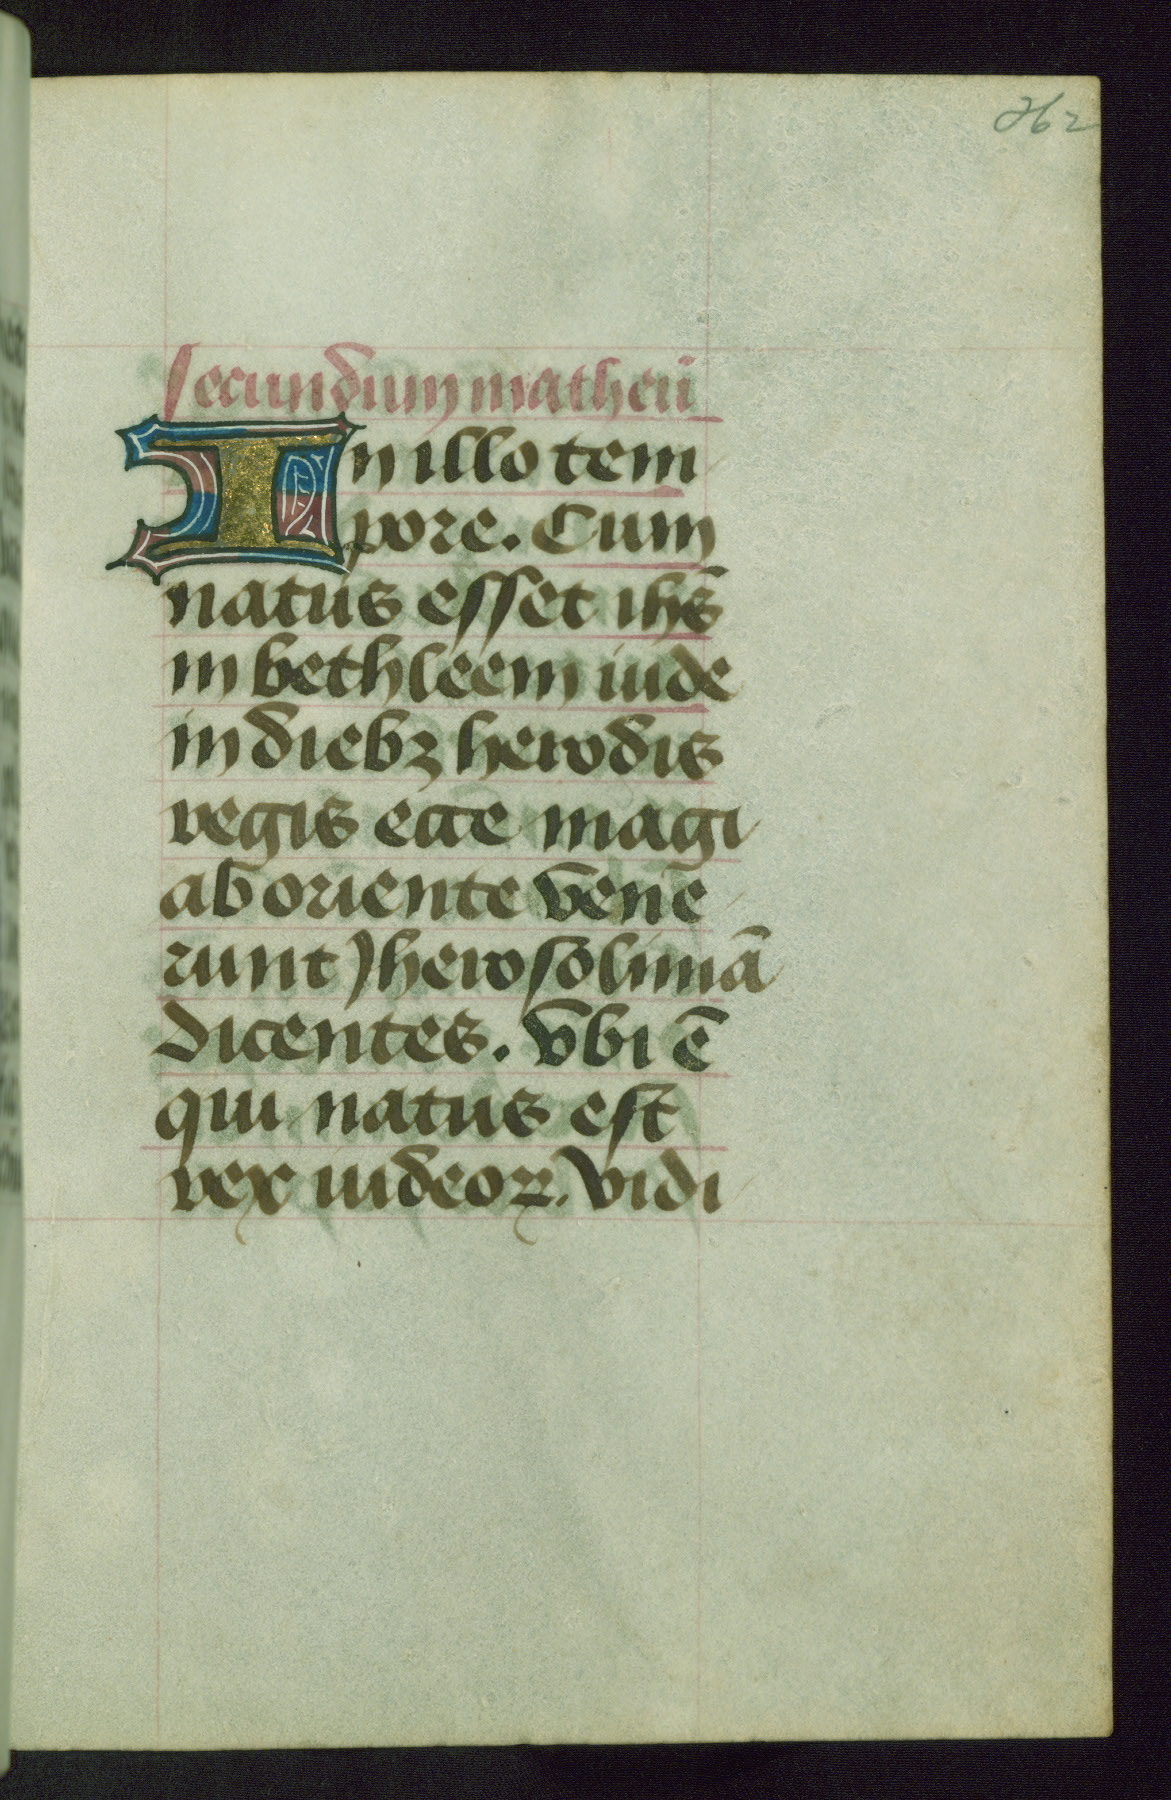 262
secundum matheū
In illo tem
pore. Cum
natus esset ihs̄
in bethleem iude
in diebꝫ herodis
regis ecce magi
ab oriente vene
runt Jherosolimā
dicentes. Vbi ē
qui natus est
rex iudeoꝝ. Vidi